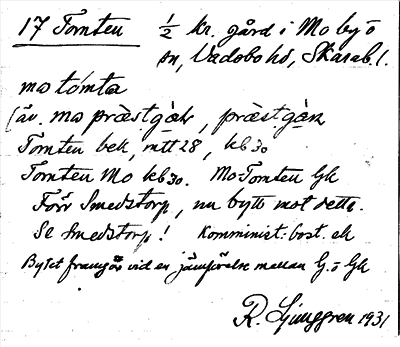 17 Tomten ½ kr. gård i Mo by o
sn, Vadsbo hd, Skarab. l.
mo tomta
(äv. mo præstgàɹn, præstgàɹn
Tomten bek, mtt 28, kb 30
Tomten Mo kb 30. Mo Tomten Gk
Förr Smedstorp, nu bytt mot detta.
Se Smedstorp! Komminist. bost. ek
Bytet framgår vid en jämförelse mellan G. o Gk
R. Ljunggren 1931